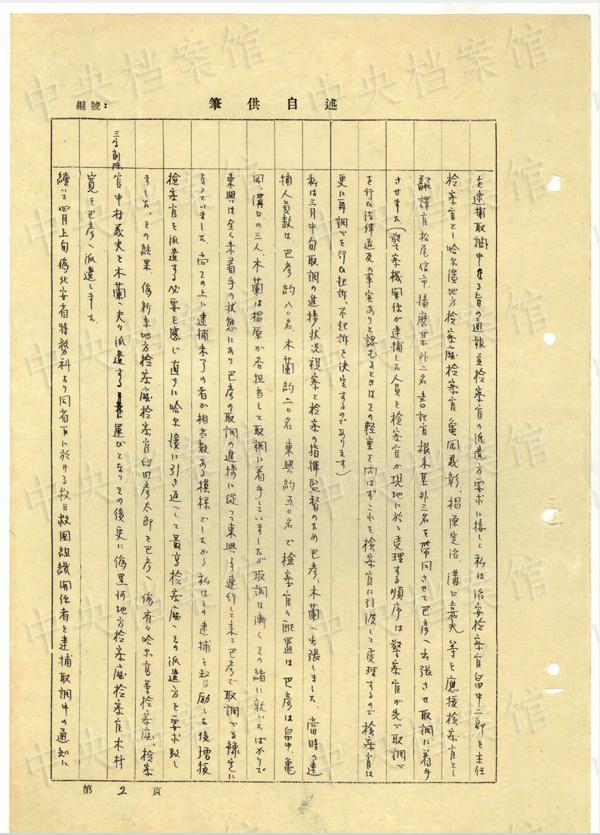 中央档案馆
編號：
筆供自述
を逮捕取調中なる旨の通報並検察官の派遣方要求に接し、私は治安検察官畠中二郎を主任
検察官とし哈尔濱地方検察庁検察官亀岡義彰、椙原定治、溝口嘉夫等を応援検察官とし
翻訳官松尾信市、播磨某外二名書記官根本某外三名を帯同させて巴彦へ出張させ取調に着手
させました（警察機関係が逮捕した人員を検察官が現地に於て受理する順序は警察官が先づ取調べ
を行ひ法律違反の事実ありと認むるときはその軽重を問はずこれを検察官に引渡して受理するので検察官は
更に再調べを行ひ起訴、不起訴を決定するのであります）
私は三月中旬取調の進捗状況視察と検察の指揮監督のため巴彦、木蘭へ出張しました。当時の逮
捕人員数は、巴彦約八〇名木蘭約二〇名東興約五〇名で検察官の配置は巴彦は畠中、亀
岡、溝口の三人木蘭は椙原が各担当して取調に着手していましたが取調は漸くその緒に就いたばかりで
東興は全く未着手の状態にあり巴彦の取調の進捗に従って東興より連行して来て巴彦で取調べる予定に
なっていました。尚この上に逮捕未了の者が相当数ある模様でしたから私はその逮捕を督励した後増援
検察官を派遣する必要を感じ直ちに哈尔濱に引き返へして最高検察庁へその派遣方を要求致し
ました。その結果、偽新京地方検察庁検察官臼田彦太郎を巴彦へ、偽斉々哈尔高等検察庁、検察
官中村義夫を木蘭へ夫々派遣する運びとなりその後更に偽黒河地方検察庁検察官木村
寛を巴彦へ派遣しました。
続いて四月上旬偽北安省特務科より同省下に於ける救日救国組織関係者を逮捕取調中の通知に
三字削除
第2頁